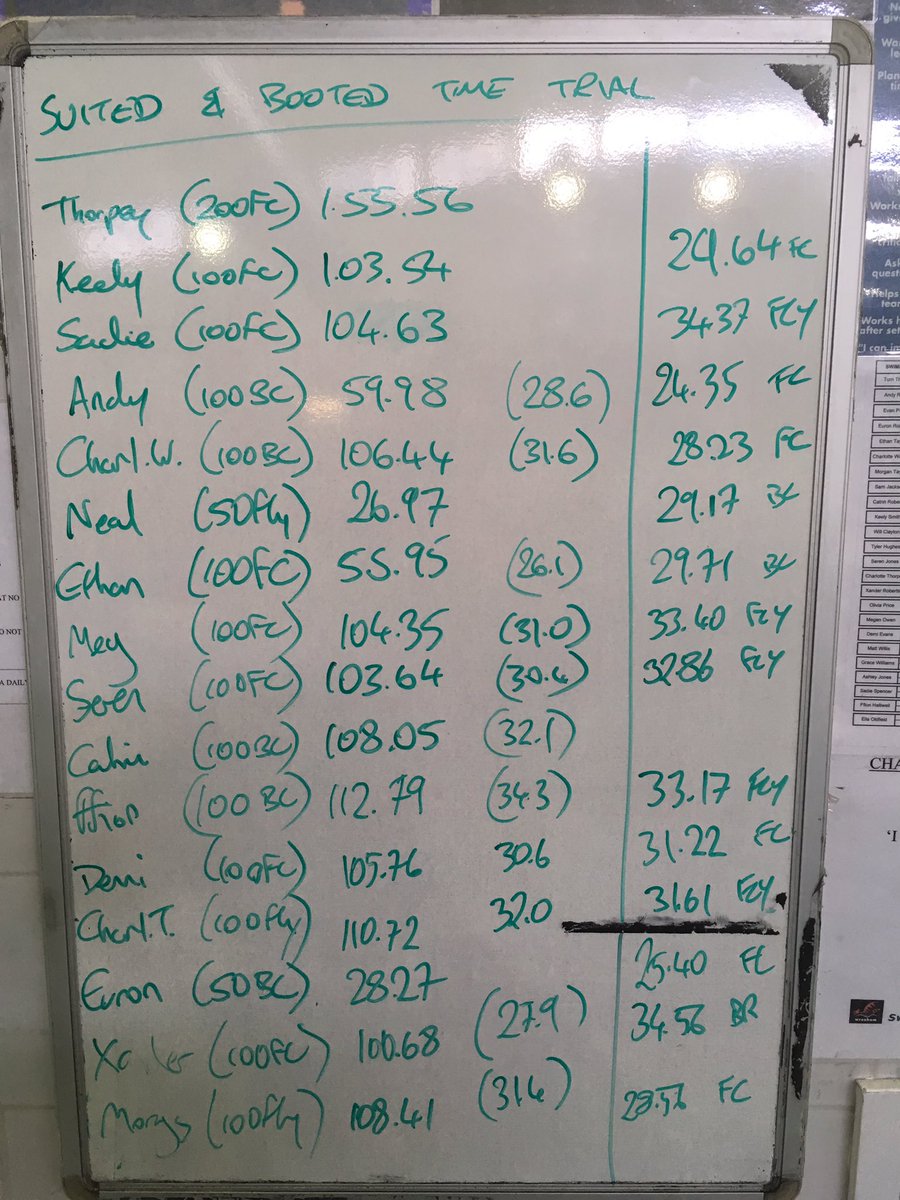 SUITED & BOOTED TIME TRIAL
Thorpey (200FC) 1.55.56
Keely (100FC) 1.03.54 29.64 FC
Sadie (100FC) 104.63 34.37 FLY
Andy (100BC) 59.98 (28.6) 24.35 FC
Charl.W. (100BC) 106.44 (31.6) 28.23 FC
Neal (50Fly) 26.97 29.17 BC
Ethan (100FC) 55.95 (26.1) 29.71 BC
Meg (100FC) 104.35 (31.0) 33.40 FLY
Seren (100FC) 103.64 (30.4) 32.86 FLY
Catrin (100BC) 108.05 (32.1)
ffion (100BC) 112.79 (34.3) 33.17 FLY
Demi (100FC) 105.76 30.6 31.22 FC
Charl.T. (100fly) 110.72 32.0 31.61 FLY
Euron (50BC). 28.27 25.40 FC
Xander (100FC) 100.68 (27.9) 34.56 BR
Morgs (100fly) 108.41 (31.4) 28.56 FC
Andy R
Evan P
Euron Ro
Ethan Ta
Charlotte W
Morgan Tay
Sam Jacks
Catrin Rober
Keely Smith
Will Clayton
Tyler Hughes
Seren Jones
Charlotte Thorp
Xander Roberts
Olivia Price
Megan Owen
Demi Evans
Matt Willis
Grace Williams
Ashley Jones
Sadie Spencer
Ffion Hallwell
Ella Oldfield
CHA
'I